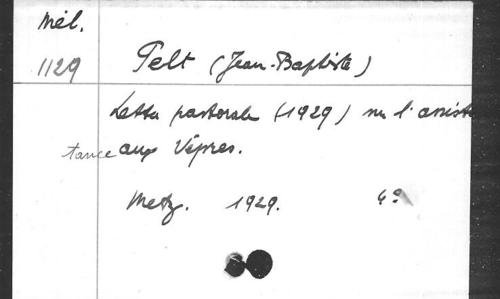 Mél.
1129 Pelt (Jean-Baptiste)
Lettre pastorale (1929) sur l'assis
tance aux Vêpres.
Metz. 1929. 4°